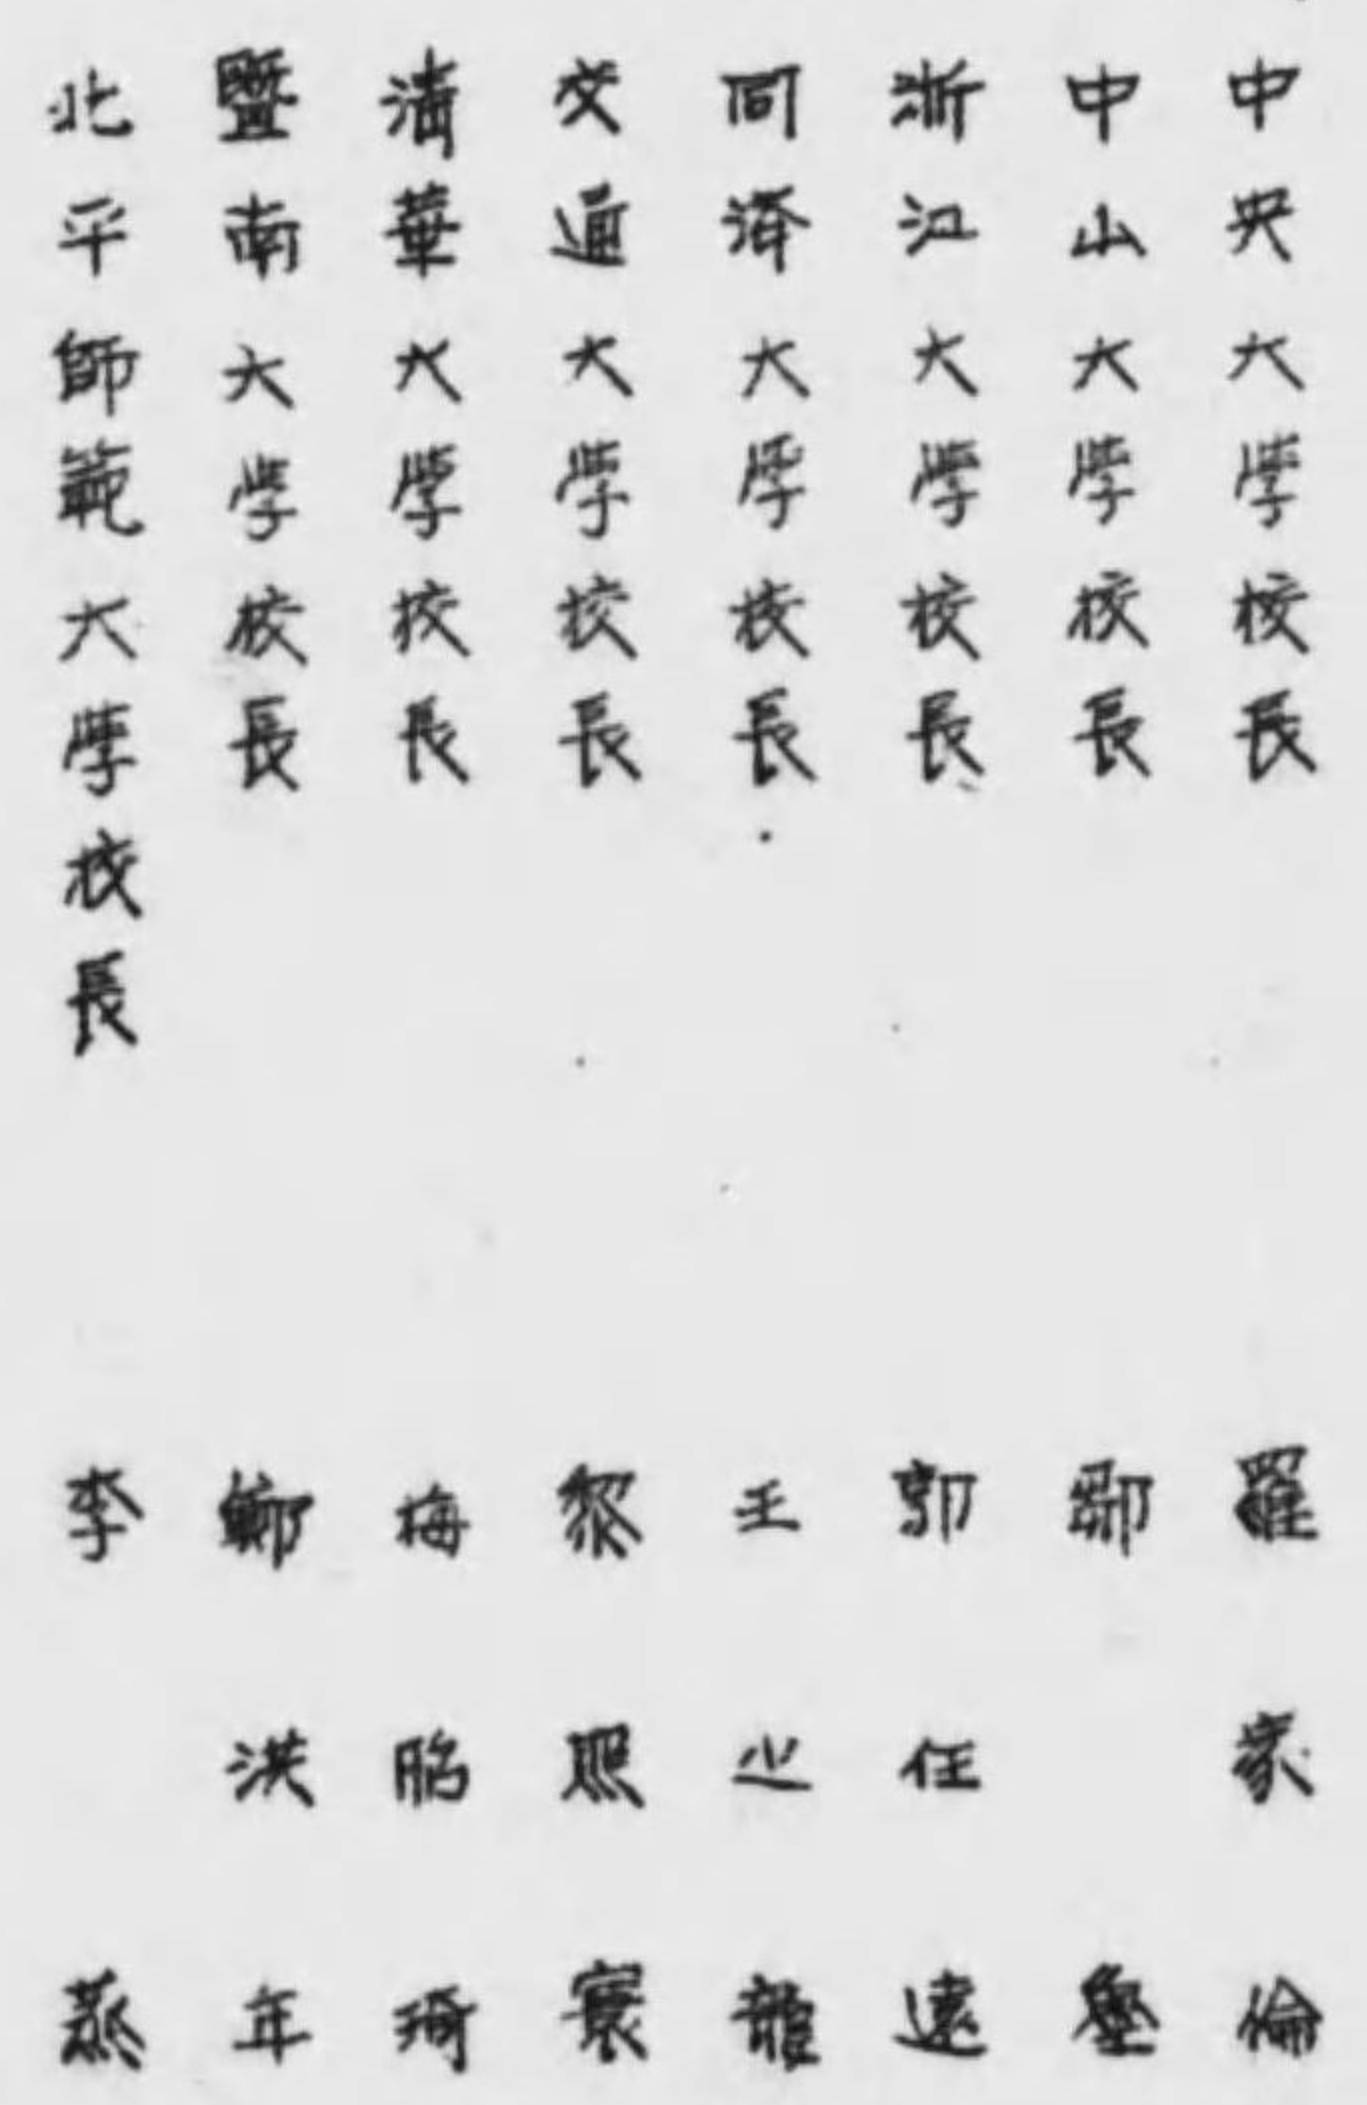 中央大學校長 羅家倫
中山大學校長 鄒魯
浙江大學校長 郭任遠
同济大學校長 王之龍
交通大學校長 黎照寰
清華大學校長 梅貽琦
暨南大學校長 鄭洪年
北平師範大學校長 李蒸